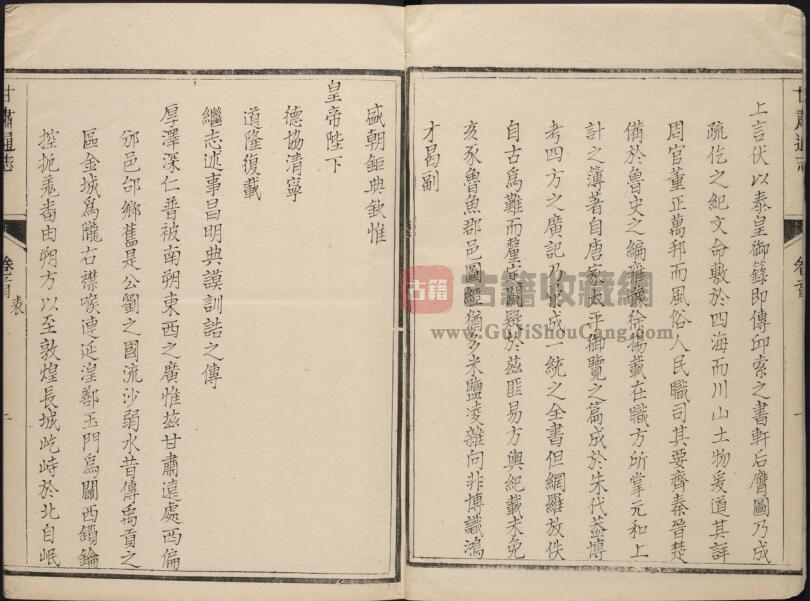 上言伏以泰皇御籙即傳印索之書軒后膺圖乃成
疏仡之紀文命敷於四海而川山土物爰道其詳
周官董正萬邦而風俗人民職司其要齊秦晉楚
備於魯史之編雍豫徐揚載在職方所掌元和上
計之薄著自唐家太平御覽之篇成於朱代益博
考四方之廣記乃彙成一統之全書但網羅放佚
自古爲難而釐定闕疑於茲匪易方輿紀載未免
亥豕魯魚郡邑圖經猶多米鹽凌雜向非博識鴻
才曷副
盛朝鉅典欽惟
皇帝陛下
德協清寧
道隆復載
繼志述事昌明典謨訓誥之傳
厚澤深仁普被南朔東西之廣惟茲甘肅遠處西偏
邠邑邰鄉舊是公劉之國流沙弱水昔傳禹貢之
區金城爲隴右襟喉連延湟鄯玉門爲關西鎖鑰
控扼羌番由朔方以至敦煌長城屹峙於北自岷
甘肅通志
卷首
甘肅通志
卷首
表
一
古籍
古籍收藏網
www.GuJiShouCang.com